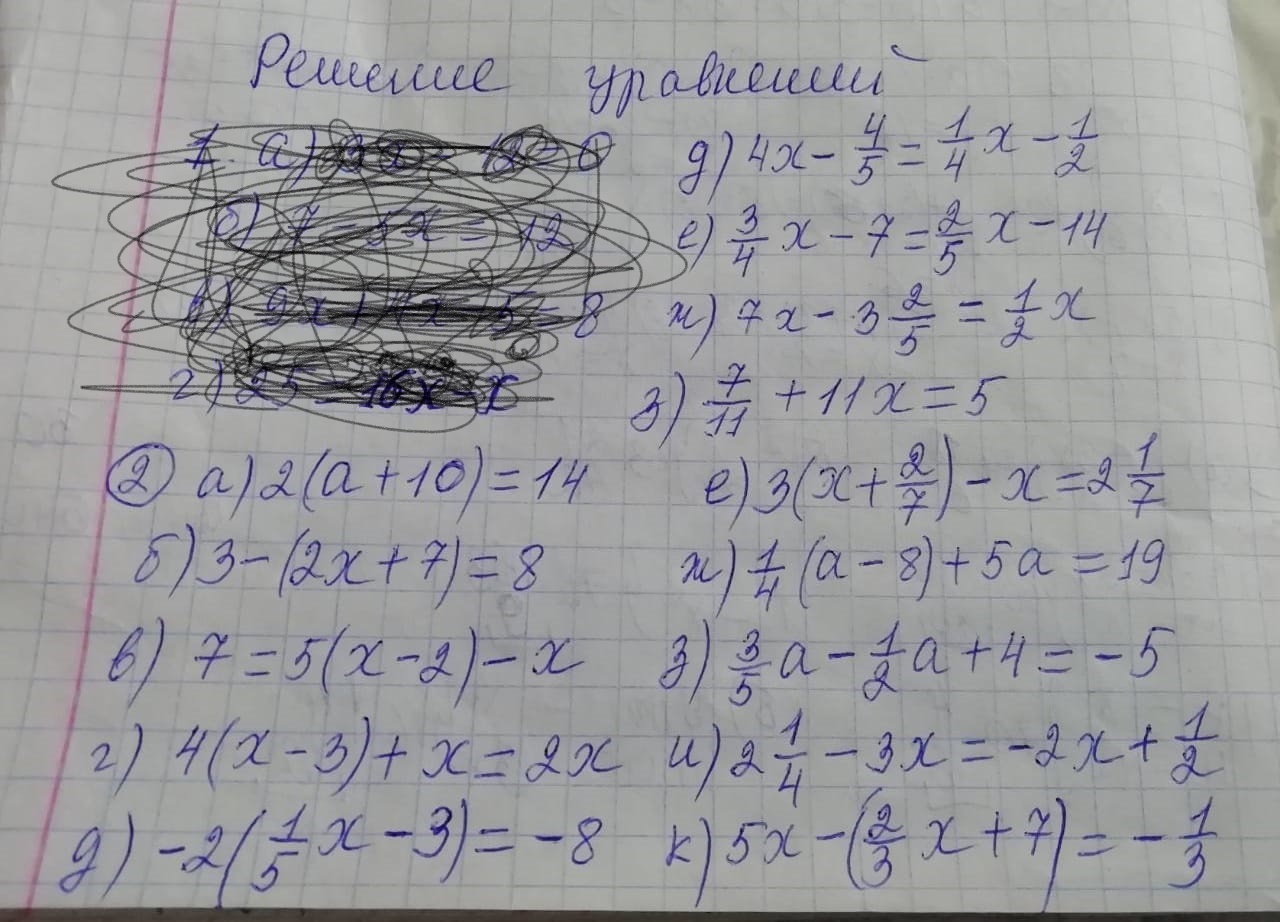 Решение уравнений
1. а)
б) 7 - 5x = 12
в) 9x + 4x - 5 = 8
г) 25 - 16x = x
д) 4x - 4/5 = 1/4 x - 1/2
е) 3/4 x - 7 = 2/5 x - 14
ж) 7x - 3 2/5 = 1/2 x
з) 7/11 + 11x = 5
② а) 2(a + 10) = 14
б) 3 - (2x + 7) = 8
в) 7 = 5(x - 2) - x
г) 4(x - 3) + x = 2x
д) -2(1/5 x - 3) = -8
е) 3(x + 2/7) - x = 2 1/7
ж) 1/4 (a - 8) + 5a = 19
з) 3/5 a - 1/2 a + 4 = -5
и) 2 1/4 - 3x = -2x + 1/2
к) 5x - (2/3 x + 7) = -1/3